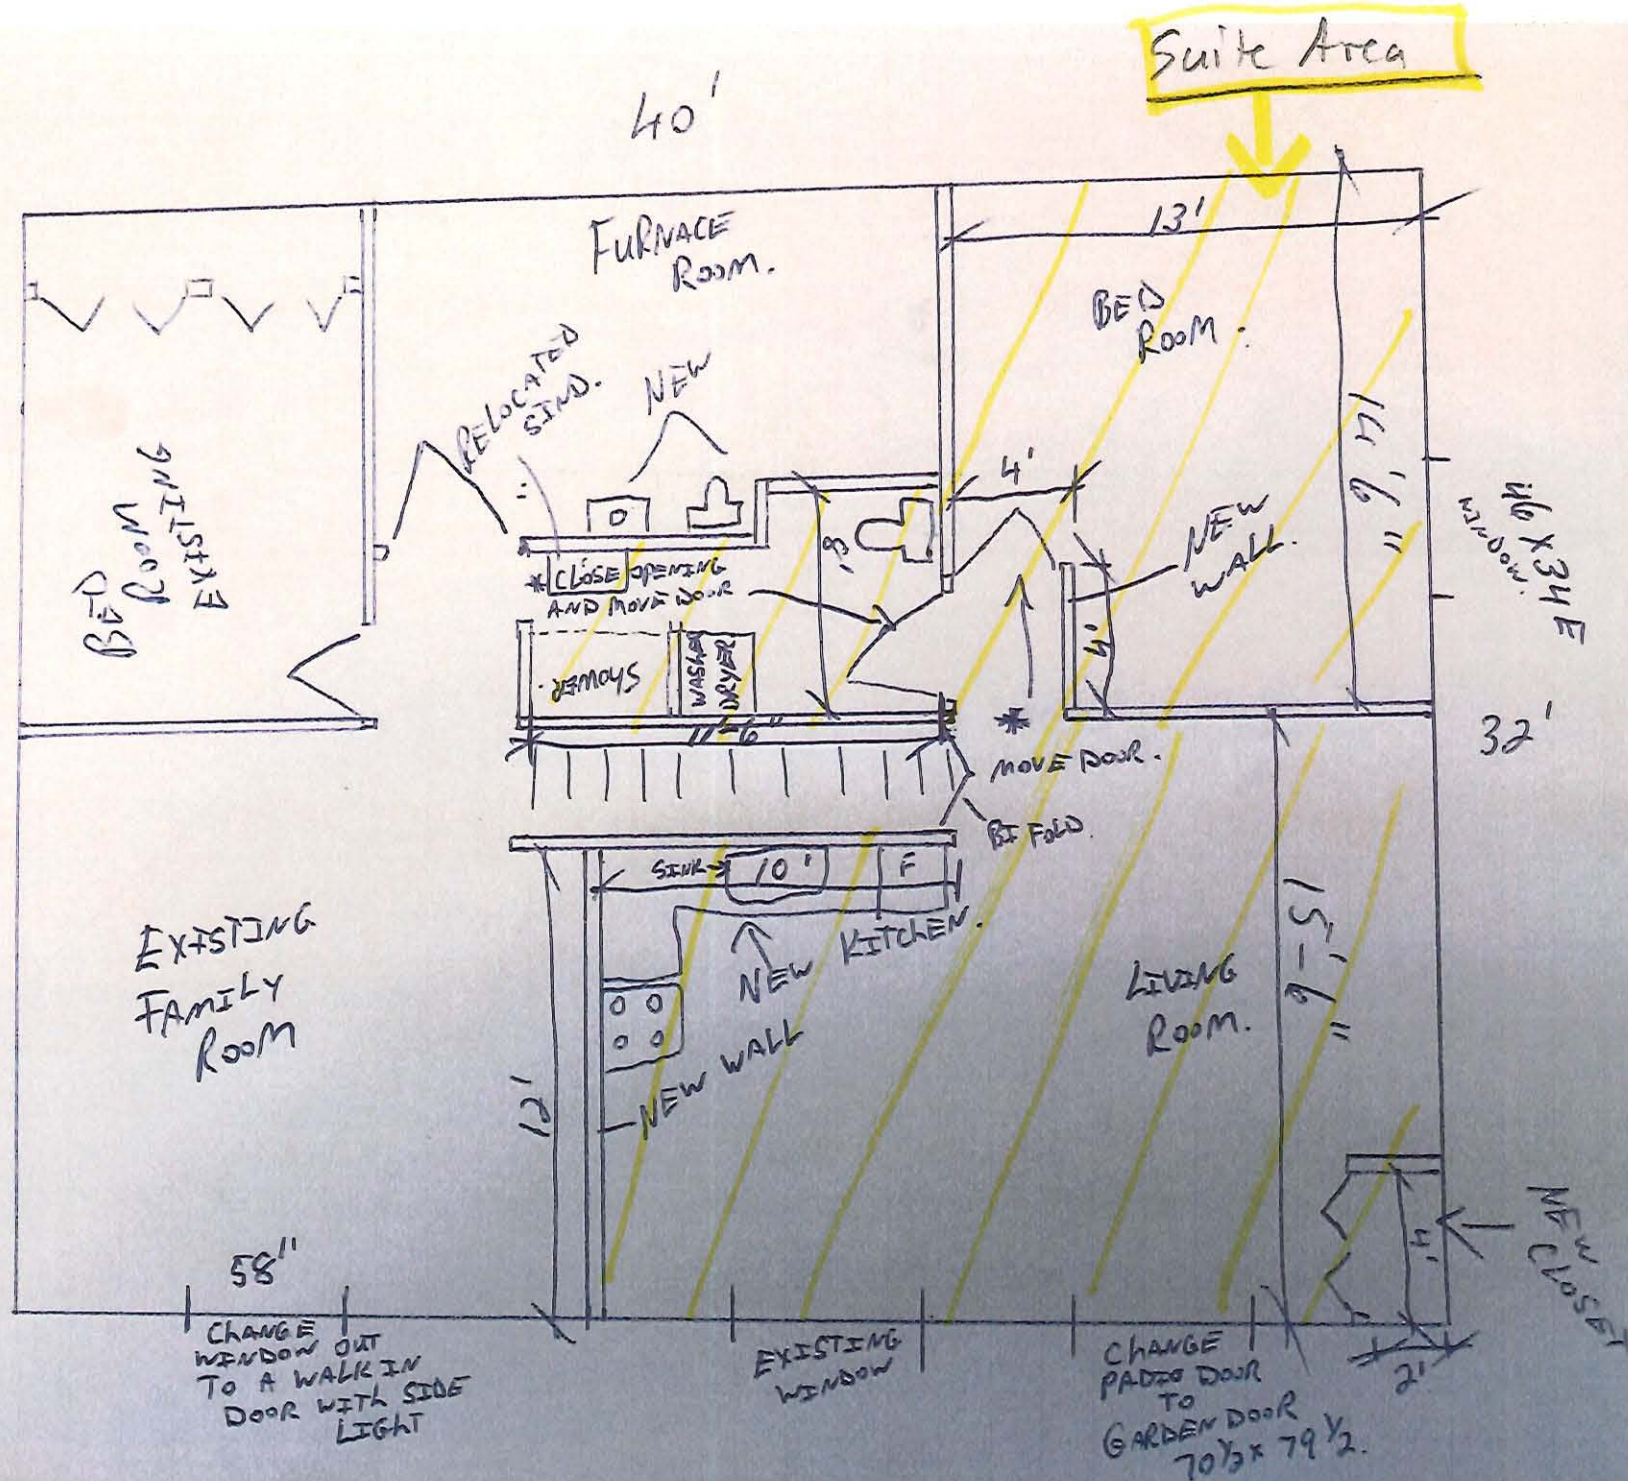 Suite Area
40'
13'
FURNACE
ROOM.
BED
ROOM.
14' 6"
EXISTING
ROOM
BED
RELOCATED
SIND.
NEW
4'
NEW
WALL.
46 X 34 E
WINDOW.
* CLOSE OPENING
AND MOVE DOOR
8'
4'
SHOWER.
WASHER
DRYER
11'-6"
*
MOVE DOOR.
32'
BI FOLD.
SINK
10'
F
NEW KITCHEN.
EXISTING
FAMILY
ROOM
LIVING
ROOM.
15'-6"
NEW WALL
12'
4'
NEW
CLOSET
58"
CHANGE
WINDOW OUT
TO A WALK IN
DOOR WITH SIDE
LIGHT
EXISTING
WINDOW
CHANGE
PADIO DOOR
TO
GARDEN DOOR
70 1/2 x 79 1/2.
2'